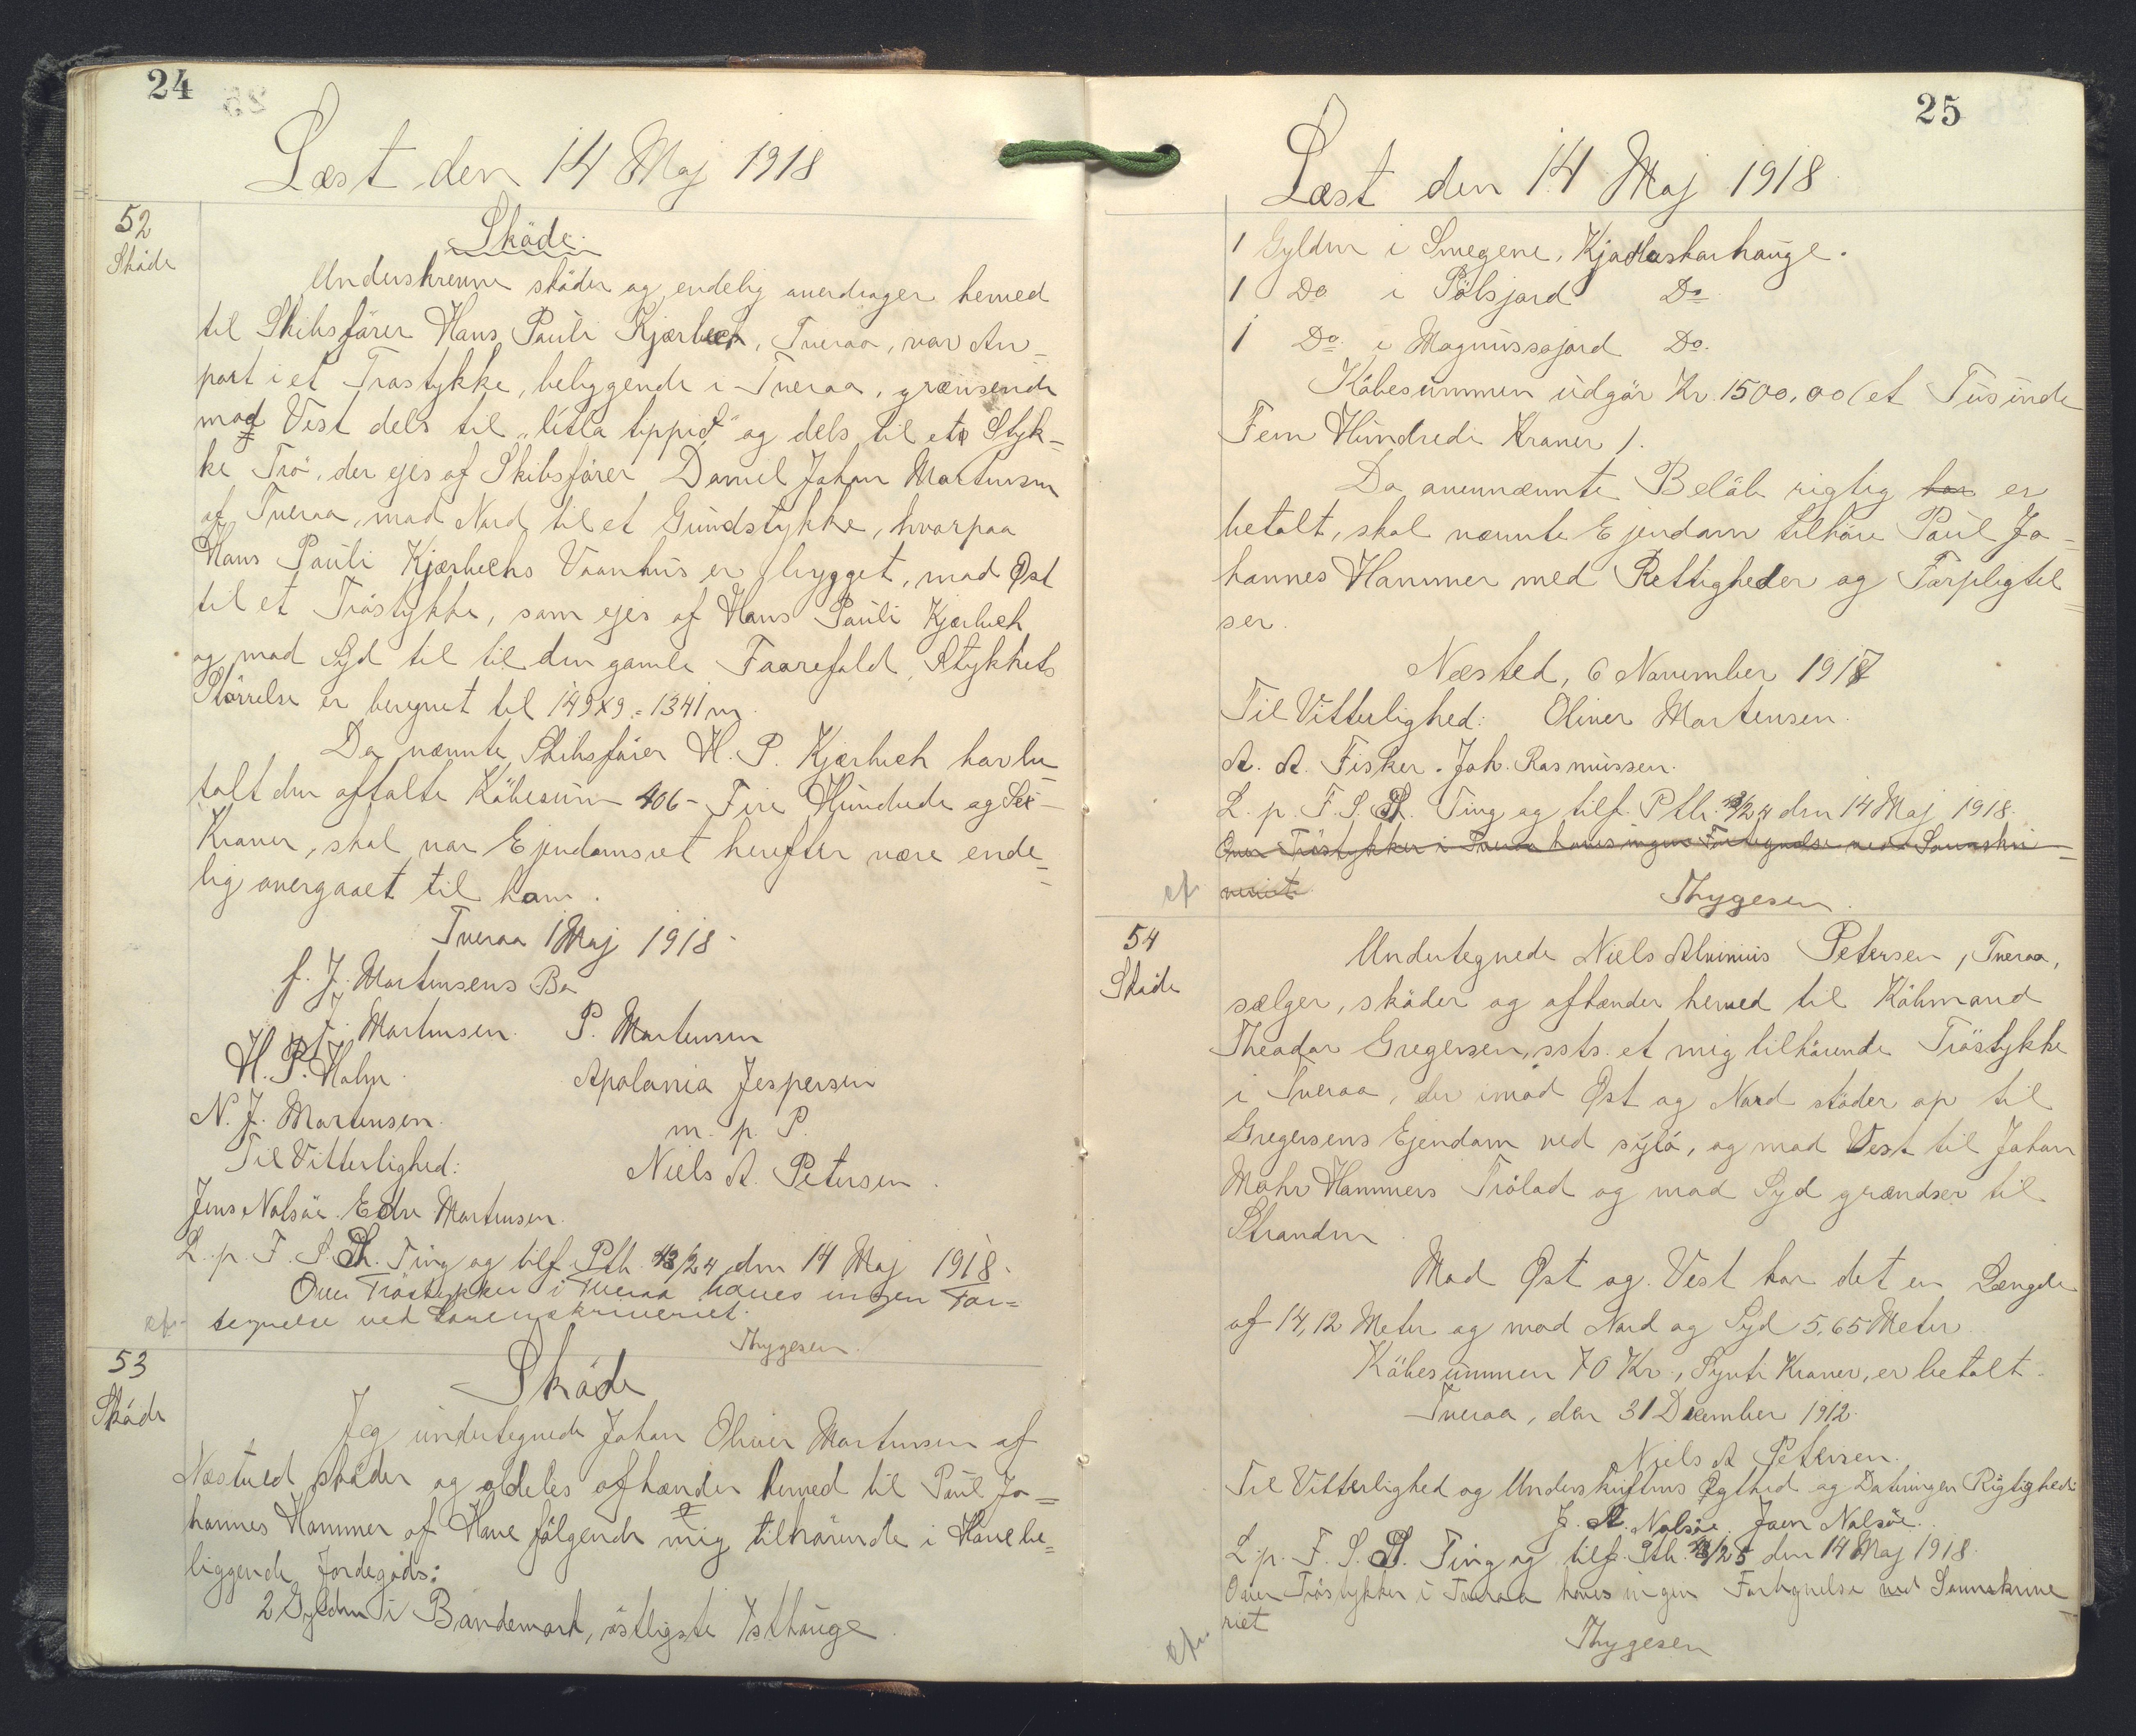 24
Læst den 14 Maj 1918
52
Sköde
Sköde.
Underskrevne sköder og endelig overdrager herved
til Skibsförer Hans Pauli Kjærbech, Tveraa, vor An-
part i et Tröstykke, beliggende i Tveraa, grænsende
mod Vest dels til „litla tippid" og dels til et Styk-
ke Trö, der ejes af Skibsförer Daniel Johan Mortensen
af Tveraa, mod Nord til et Grundstykke, hvorpaa
Hans Pauli Kjærbechs Vaanhus er bygget, mod Øst
til et Tröstykke, som ejes af Hans Pauli Kjærbech
og mod Syd til til den gamle Faarefold, Stykkets
Störrelse er beregnet til 149x9 = 1341 m
Da nævnte Skibsförer H. P. Kjærbech har be-
talt den aftalte Köbesum 406 - Fire Hundrede og Sex -
Kroner, skal vor Ejendomsret herefter være ende-
lig overgaaet til ham.
Tveraa 1 Maj 1918.
f. J. Mortensens Bo
J. Mortensen. P. Mortensen
H. P. Holm. Apolonia Jespersen
N. J. Mortensen. m. p. P.
Til Vitterlighed: Niels A. Petersen.
Jens Nolsöe. Edv Mortensen.
L. p. F. S. Th. Ting og tilf. Ptb. 43/24 den 14 Maj 1918.
Over Tröstykker i Tveraa haves ingen For=
tegnelse ved Sorenskriveriet.
Thygesen.
53
Sköde
Sköde
Jeg undertegnede Johan Oliver Mortensen af
Næstved sköder og aldeles afhænder herved til Poul Jo=
hannes Hammer af Hove fölgende mig tilhörende i Hove be=
liggende Jordegods:
2 Gylden i Bondemark, östligste Ysthauge.
25
Læst den 14 Maj 1918.
1 Gylden i Smegene, Kjadlaskarhauge.
1 Do i Pölsjord Do
1 Do. i Magnussajord Do.
Köbesummen udgör Kr. 1500,00 (et Tusinde
Fem Hundrede Kroner).
Da ovennævnte Belöb rigtig har er
betalt, skal nævnte Ejendom tilhöre Poul Jo=
hannes Hammer med Rettigheder og Forpligtel=
ser.
Næsted, 6 November 1917
Til Vitterlighed: Oliver Mortensen.
A. A. Fisker. Joh. Rasmussen.
L. p. F. S. Th. Ting og tilf. Ptb. 43/24 den 14 Maj 1918.
Over Tröstykker i Tveraa haves ingen Fortegnelse ved Sorenskri=
veriet.
Thygesen.
54
Sköde
Undertegnede Niels Alvinius Petersen, Tveraa,
sælger, sköder og afhænder herved til Köbmand
Theodor Gregersen, ssts. et mig tilhörende Tröstykke
i Tveraa, der imod Øst og Nord stöder op til
Gregersens Ejendom ved sýló, og mod Vest til Johan
Mohr Hammers Trölod og mod Syd grændser til
Stranden
Mod Øst og Vest har det en Længde
af 14,12 Meter og mod Nord og Syd 5,65 Meter
Köbesummen 70 Kr., Synti Kroner, er betalt.
Tveraa, den 31 December 1912.
Niels A Petersen.
Til Vitterlighed og Underskriftens Ægthed og Dateringen Rigtighed:
J. A. Nolsöe. Joen Nolsöe.
L. p. F. S. Th. Ting og tilf. Ptb. 43/25 den 14 Maj 1918.
Over Tröstykker i Tveraa haves ingen Fortegnelse ved Sorenskrive=
riet
Thygesen